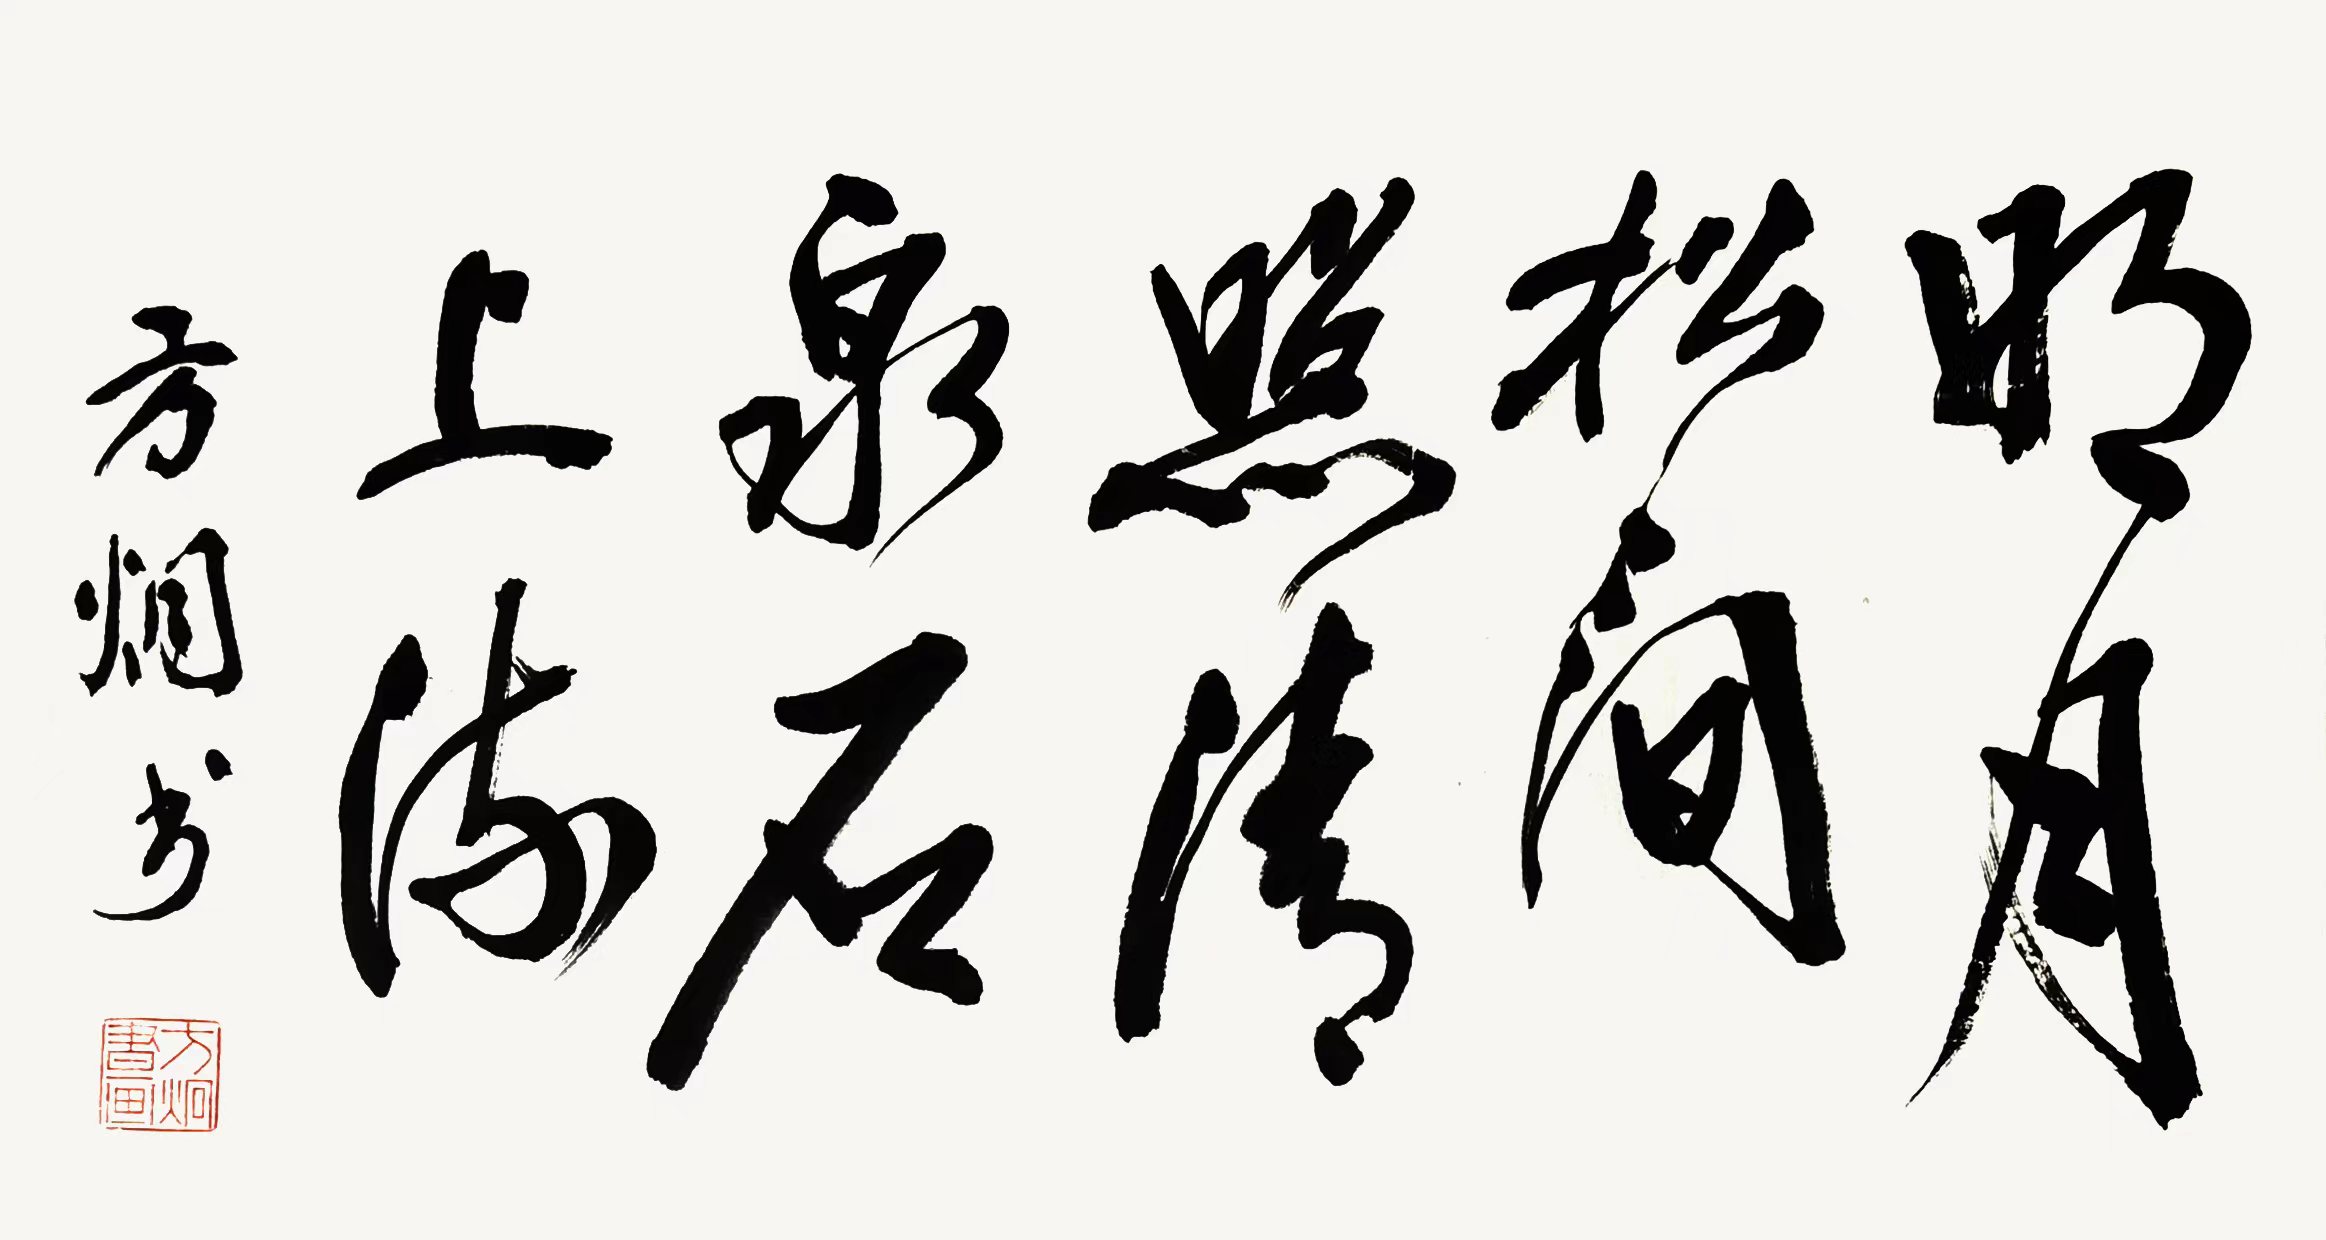 明月
松间
照清
泉石
上流
方炯书
方炯
書画